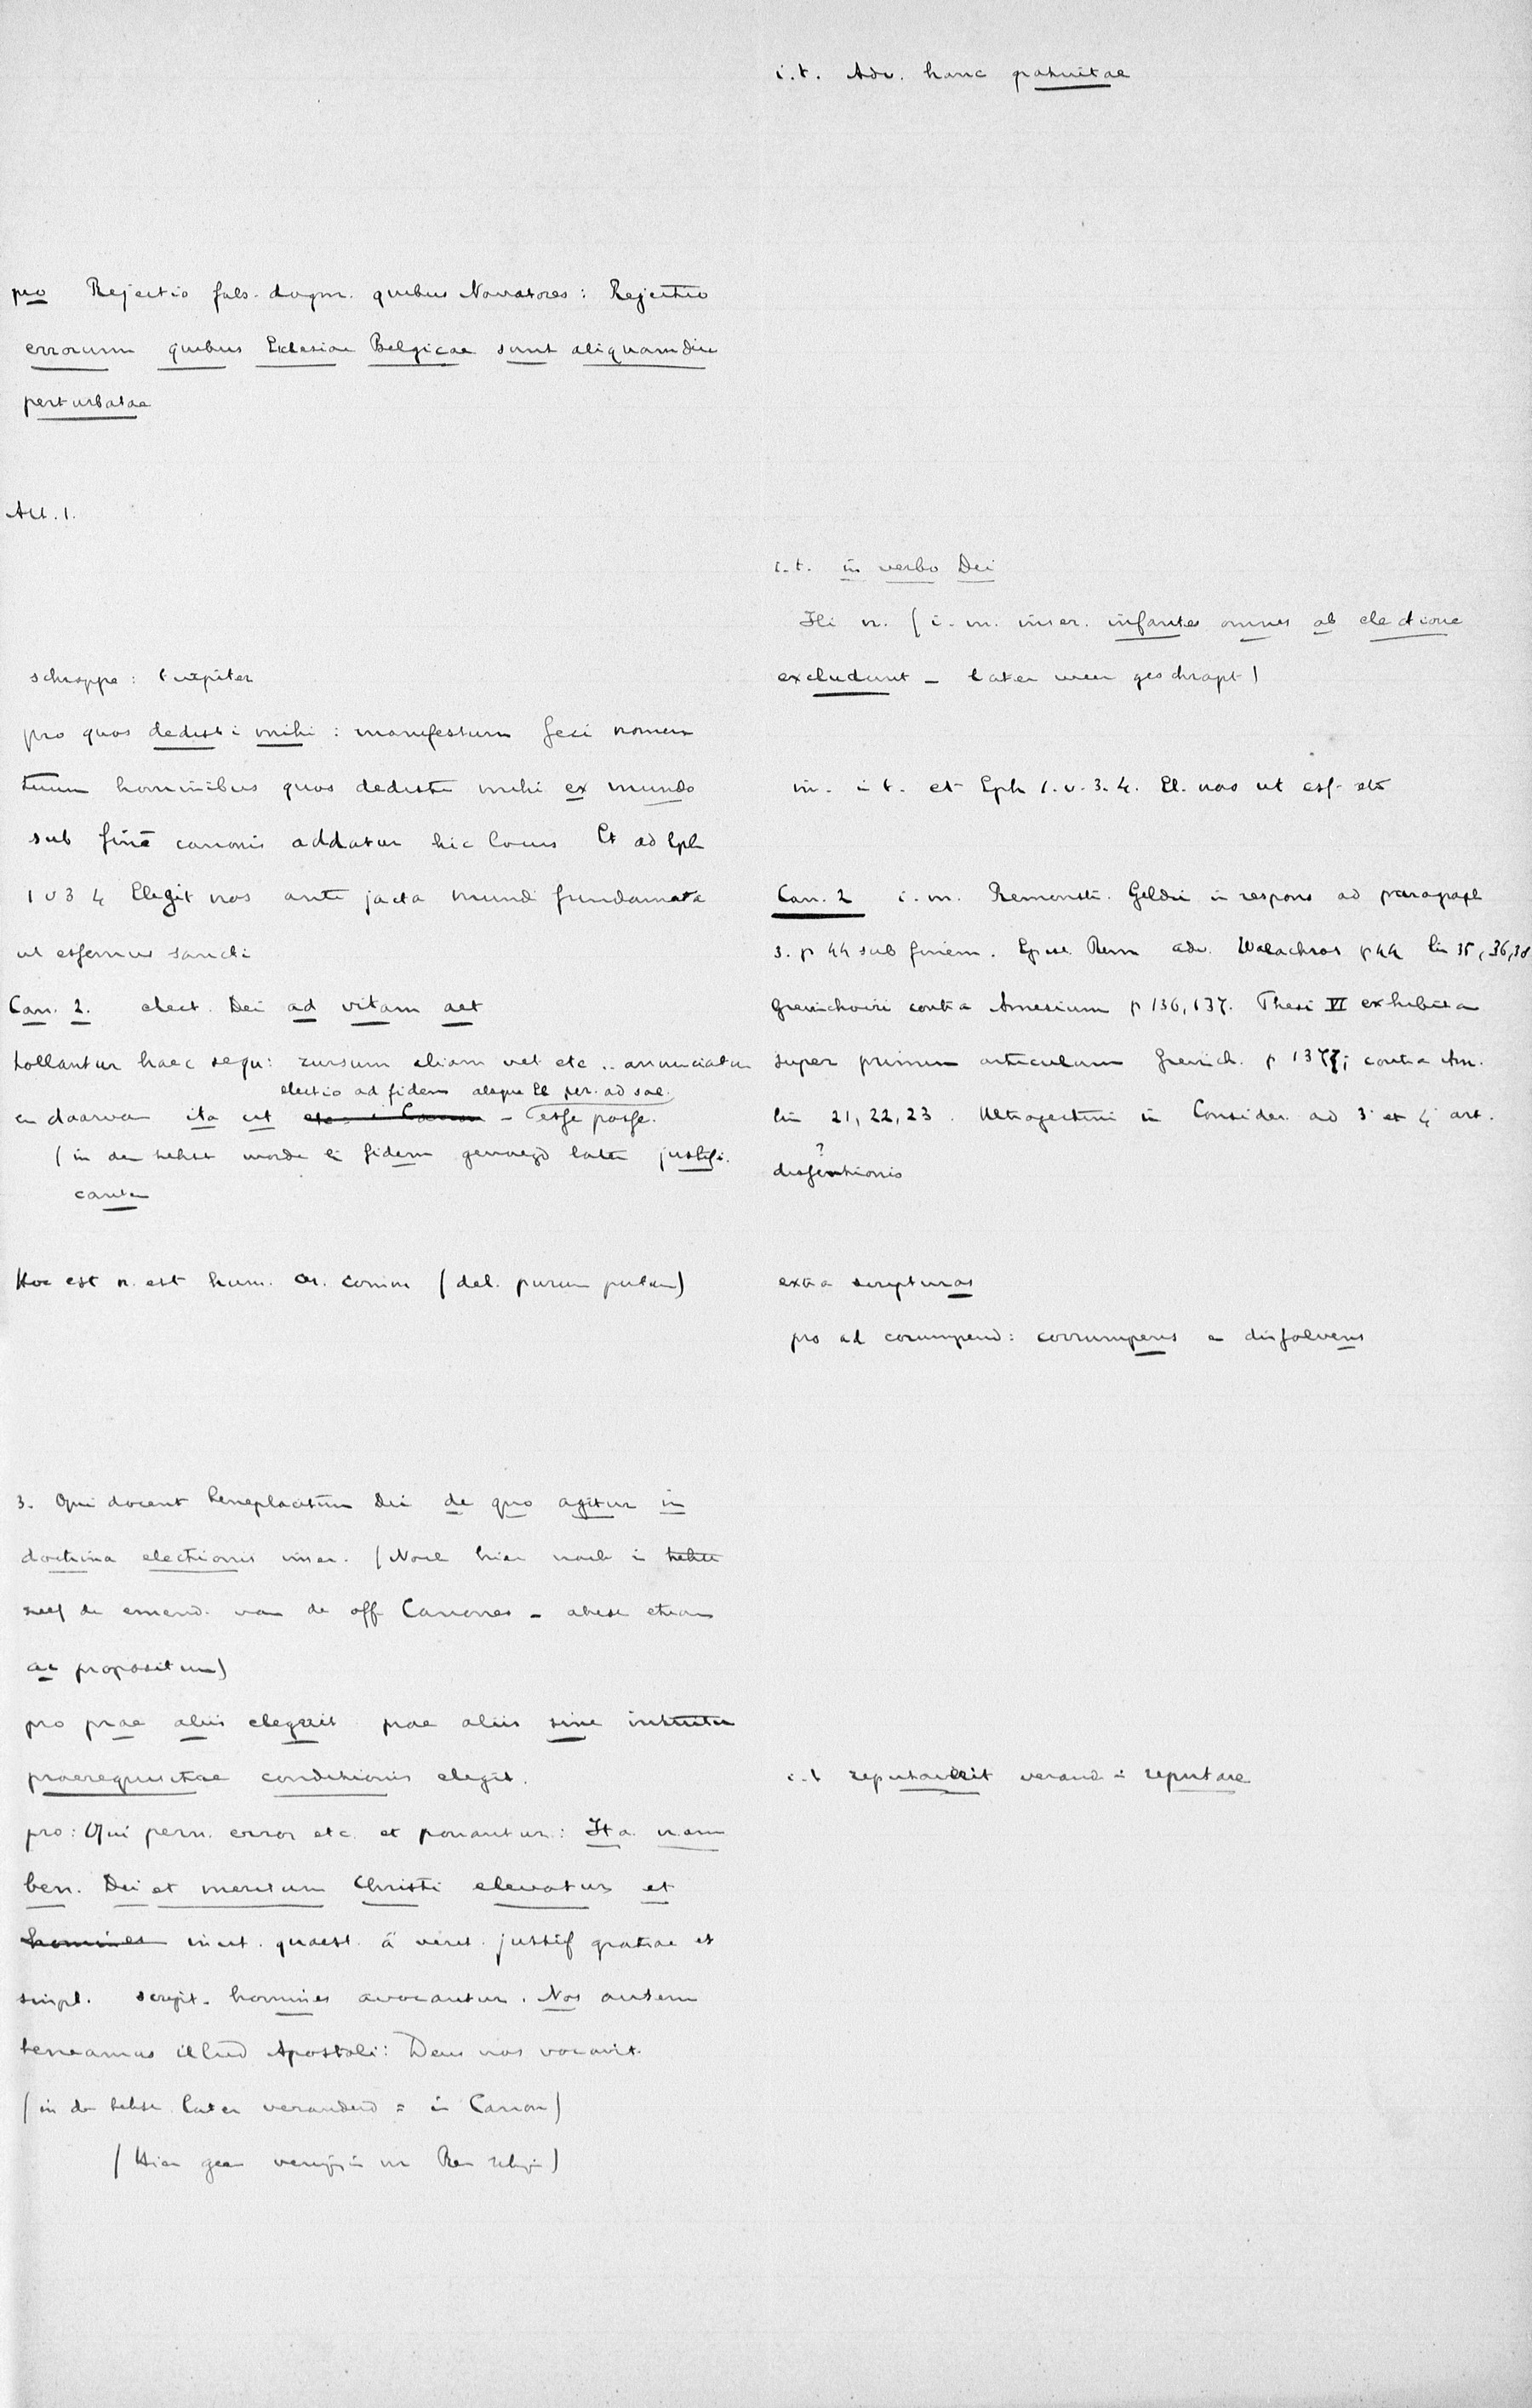 i.t. Adv. hanc gratuitae
pro Rejectio fals. dogm. quibus Novatores: Rejectio
errorum quibus Ecclesiae Belgicae sunt aliquamdiu
perturbatae
Art. 1.
schrappe: turpiter
pro quos dedisti mihi: manifestum feci nomen
tuum hominibus quos dedisti mihi ex mundo
sub finē canonis addatur hic locus Et ad Eph
1 v 3 4 Elegit nos ante jacta mundi fundamenta
ut essemus sancti
Can. 2. elect. Dei ad vitam aet
tollantur haec sequ: rursum aliam vel etc .. annunciatur
electio ad fidem absque El per. ad sal.
en daarvan ita ut etc. i Canon - esse posse.
(in den tekst worde bij fidem gevoegd later justifi.
cantem
Hoc est n. est hum. cer. comm (del. purum putum)
3. Qui docent beneplacitum Dei de quo agitur in
doctrina electionis inser. (Noch hier noch in tekst
zelf de emend. van de off Canones - abest etiam
ac propositum)
pro prae aliis elegerit prae aliis sine intuitu
praerequisitae conditionis elegit.
pro: Qui pern. error etc. et ponantur: Ita nam
ben. Dei et meritum Christi elevatur et
homines inut. quaest. á verit. justif gratiae et
simpl. script. homines avocantur. Nos autem
teneamus illud Apostoli: Deus nos vocavit.
(in den tekst later veranderd = in Canon)
(Hier geen verwijzing)
i.t. in verbo Dei
Hi n. (i.m. inser. infantes omnes ab electione
excludunt - later weer geschrapt)
in. i t. et Eph 1. v. 3. 4. El. nos ut ess. etc
Can. 2 i.m. Remonstr. Geldri in respons ad paragraph
3. p 44 sub finem. Epist. Rem adv. Walachros p 44 lin 35, 36, 38
Grevinchovii contra Amesium p 136, 137. Thesi VI exhibita
super primum articulum Grevinch. p 137; contra Am.
lin 21, 22, 23. Ultrajectini in Consider. ad 3 et 4 art.
dissentionis ?
extra scripturas
pro ad corrumpend: corrumpens en dissolvens
i.t reputaverit verand. in reputare